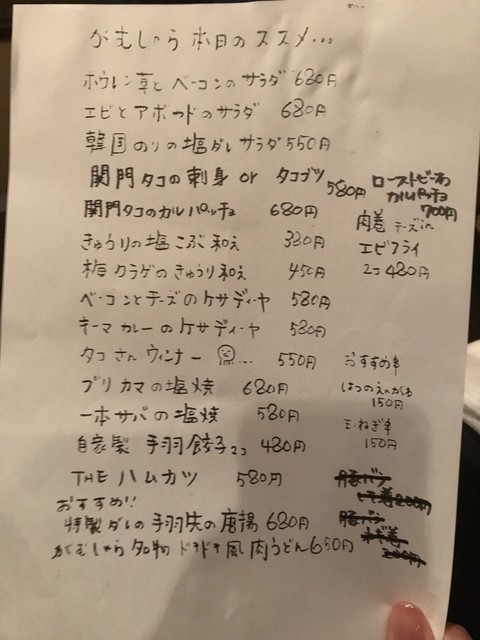 がむしゃら 本日のススメ...
ホウレン草とベーコンのサラダ 680円
エビとアボカドのサラダ 680円
韓国のりの塩ダレサラダ 550円
関門タコの刺身 or タコブツ 580円
関門タコのカルパッチョ 680円
きゅうりの塩こぶ和え 380円
梅クラゲのきゅうり和え 450円
ベーコンとチーズのケサディーヤ 580円
キーマカレーのケサディーヤ 580円
タコさんウィンナー ... 550円
ブリカマの塩焼 680円
一本サバの塩焼 580円
自家製 手羽餃子2コ 480円
THE ハムカツ 580円
おすすめ!!
特製ダレの手羽先の唐揚 680円
がむしゃら名物 ドキドキ風 肉うどん 650円
ローストビーフの
カルパッチョ
700円
肉巻 チーズin
エビフライ
2コ 480円
おすすめ串
はつの
150円
ねぎ串
150円
豚バン
200円
豚バン
ねぎ巻
200円